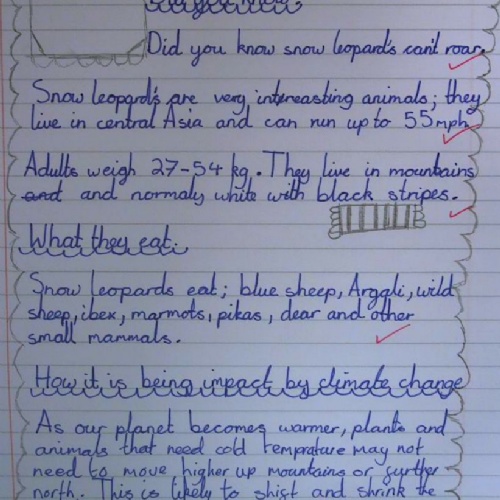 Did you know snow leopards can't roar.
Snow leopards are very intereasting animals; they
live in central Asia and can run up to 55mph.
Adults weigh 27-54 kg. They live in mountains
and and normaly white with black stripes.
What they eat.
Snow leopards eat; blue sheep, Argali, wild
sheep, ibex, marmots, pikas, dear and other
small mammals.
How it is being impact by climate change
As our planet becomes warmer, plants and
animals that need cold temprature may not
need to move higher up mountains or further
north. This is likely to shift and shrink the